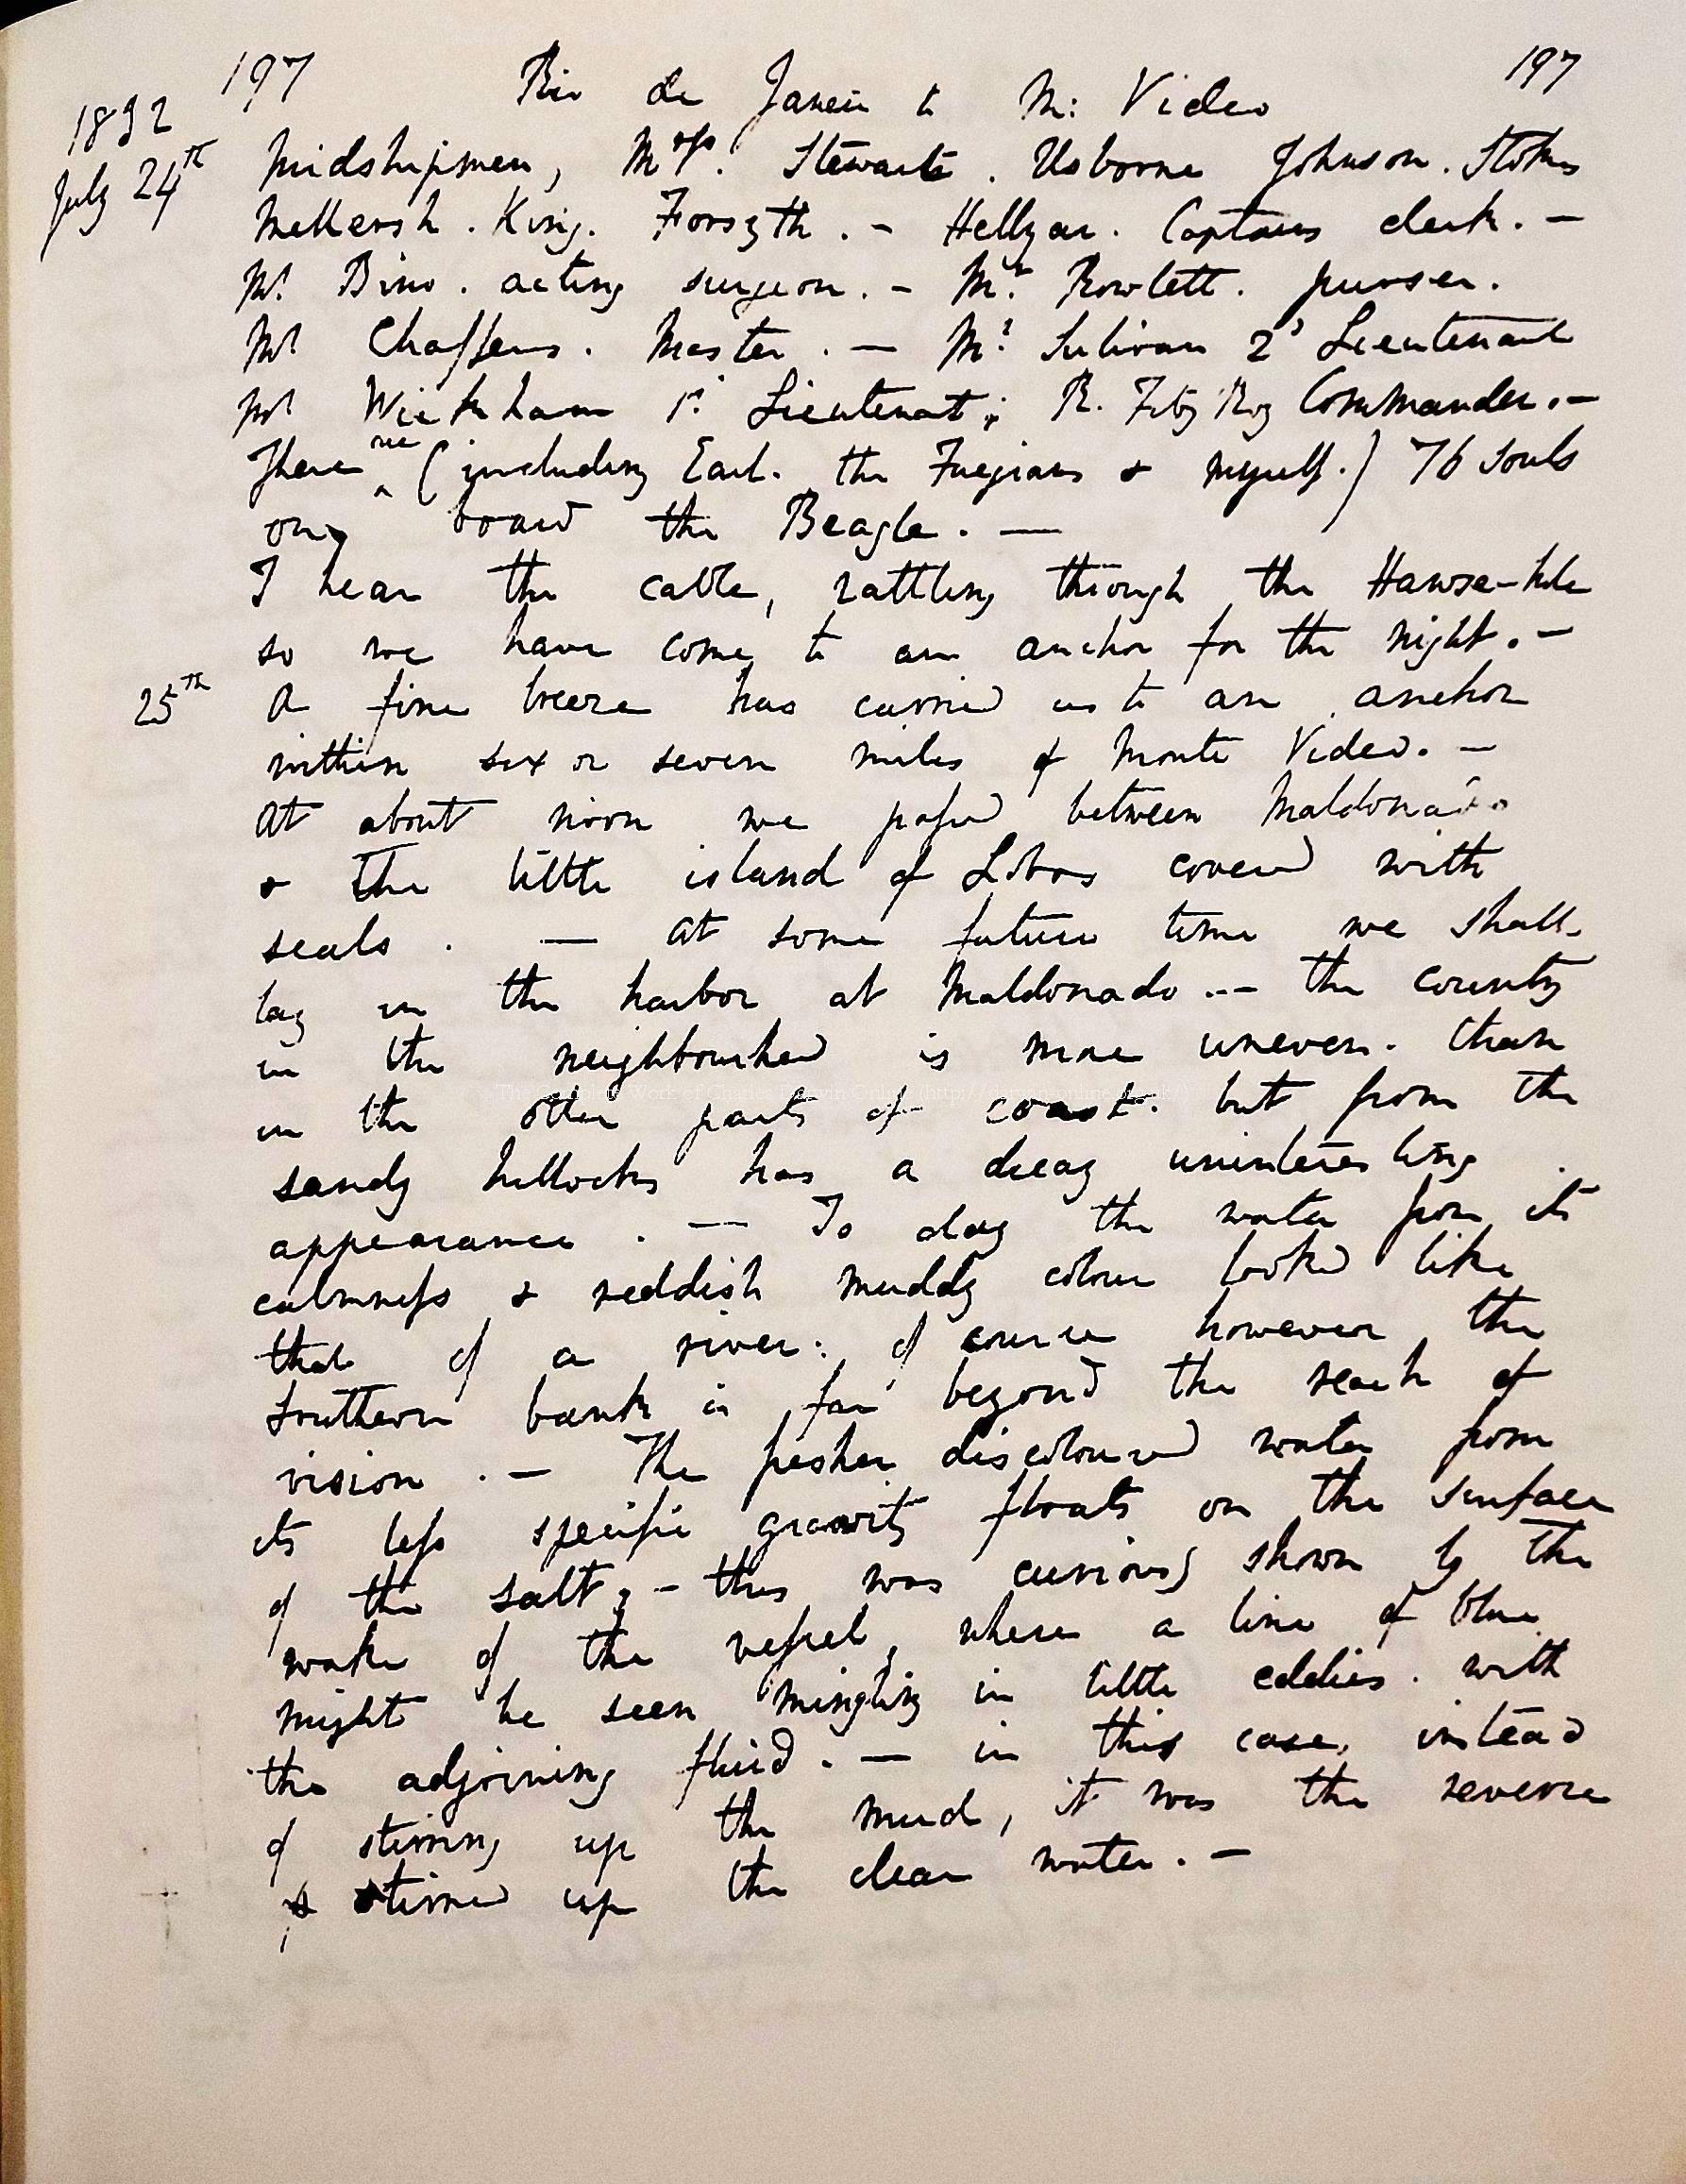 197 Rio de Janeiro to M: Video 197
1832
July 24th midshipmen, Mrss. Stewart. Usborne Johnson. Stokes
Mellersh. King. Forsyth. - Hellyar. Captains clerk. -
Mr. Bino. acting surgeon. - Mr. Rowlett. purser.
Mr Chaffers. Master. - Mr. Sulivan 2d Lieutenant
Mr Wickham 1st Lieutenat; R. FitzRoy Commander. -
There are (including Earl. the Fuegians & myself.) 76 souls
on board the Beagle. —
I hear the cable, rattling through the Hawse-hole
so we have come to an anchor for the night. -
25th A fine breeze has carried us to an anchor
within six or seven miles of Monte Video. -
At about noon we passed between Maldonado
& the little island of Lobos covered with
seals. — At some future time we shall
lay in the harbor at Maldonado. - the country
in the neighbourhed is more uneven. than
in the other parts of coast. but from the
sandy hillocks has a dreay uninteresting
appearance. — To day the water from its
calmness & reddish muddy colour looked like
that of a river: of course however the
Southern bank is far beyond the reach of
vision. - The fresher discoloured water from
its less specific gravity floats on the surface
of the salt; - this was curiously shown by the
wake of the vessel, where a line of blue
might be seen mingling in little eddies. with
the adjoining fluid. — in this case, instead
of stirring up the mud, it was the reverse
& stirred up the clear water. -